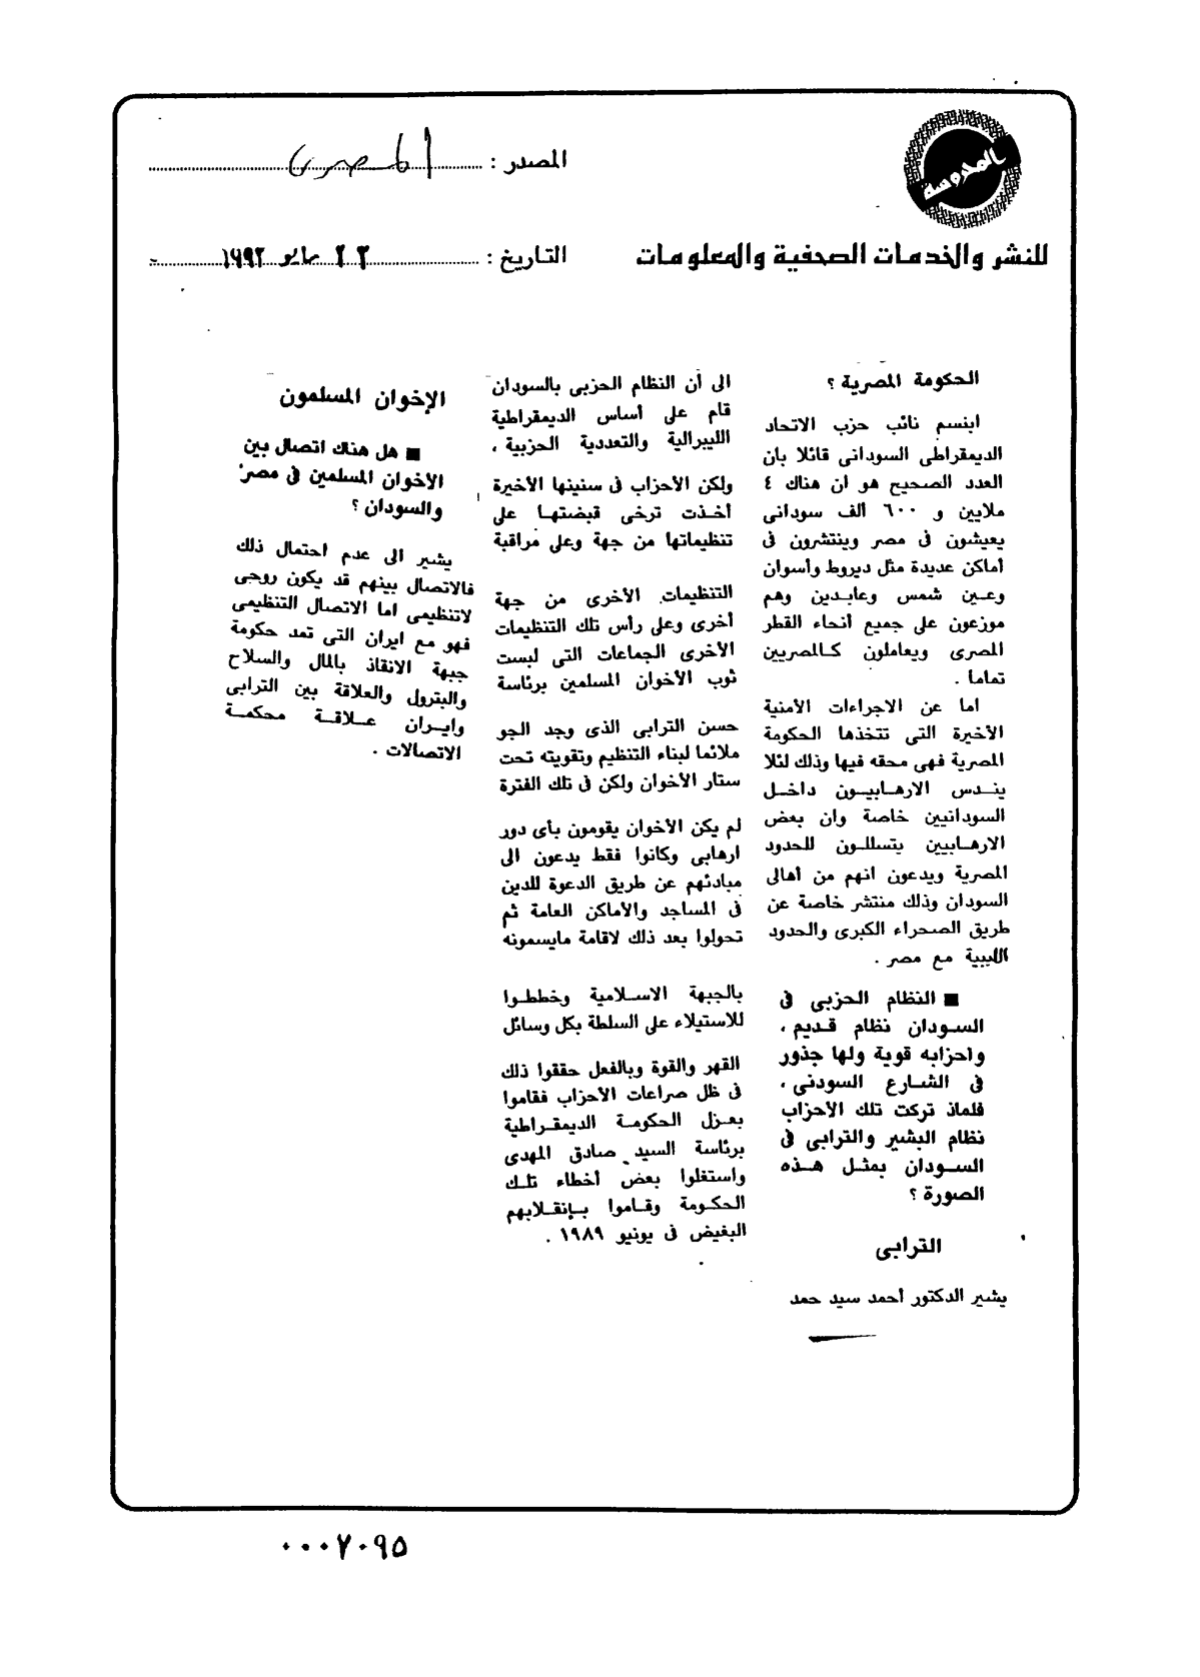 المحروسة
للنشر والخدمات الصحفية والمعلومات
المصدر : المصرى
التاريخ : ٢٢ مايو ١٩٩٢
الحكومة المصرية ؟
ابتسم نائب حزب الاتحاد
الديمقراطى السودانى قائلا بان
العدد الصحيح هو ان هناك ٤
ملايين و ٦٠٠ الف سودانى
يعيشون فى مصر وينتشرون فى
أماكن عديدة مثل ديروط وأسوان
وعين شمس وعابدين وهم
موزعون على جميع أنحاء القطر
المصرى ويعاملون كالمصريين
تماما .
اما عن الاجراءات الأمنية
الأخيرة التى تتخذها الحكومة
المصرية فهى محقه فيها وذلك لئلا
يندس الارهابيون داخل
السودانيين خاصة وان بعض
الارهابيين يتسللون للحدود
المصرية ويدعون انهم من أهالى
السودان وذلك منتشر خاصة عن
طريق الصحراء الكبرى والحدود
الليبية مع مصر .
■ النظام الحزبى فى
السودان نظام قديم ،
واحزابه قوية ولها جذور
فى الشارع السودنى ،
فلماذ تركت تلك الأحزاب
نظام البشير والترابى فى
السودان بمثل هذه
الصورة ؟
الترابى
يشير الدكتور أحمد سيد حمد
الى أن النظام الحزبى بالسودان
قام على أساس الديمقراطية
الليبرالية والتعددية الحزبية ،
ولكن الأحزاب فى سنينها الأخيرة
أخذت ترخى قبضتها على
تنظيماتها من جهة وعلى مراقبة
التنظيمات الأخرى من جهة
أخرى وعلى رأس تلك التنظيمات
الأخرى الجماعات التى لبست
ثوب الأخوان المسلمين برئاسة
حسن الترابى الذى وجد الجو
ملائما لبناء التنظيم وتقويته تحت
ستار الأخوان ولكن فى تلك الفترة
لم يكن الأخوان يقومون بأى دور
ارهابى وكانوا فقط يدعون الى
مبادئهم عن طريق الدعوة للدين
فى المساجد والأماكن العامة ثم
تحولوا بعد ذلك لاقامة مايسمونه
بالجبهة الاسلامية وخططوا
للاستيلاء على السلطة بكل وسائل
القهر والقوة وبالفعل حققوا ذلك
فى ظل صراعات الأحزاب فقاموا
بعزل الحكومة الديمقراطية
برئاسة السيد صادق المهدى
واستغلوا بعض أخطاء تلك
الحكومة وقاموا بإنقلابهم
البغيض فى يونيو ١٩٨٩ .
الإخوان المسلمون
■ هل هناك اتصال بين
الأخوان المسلمين فى مصر
والسودان ؟
يشير الى عدم احتمال ذلك
فالاتصال بينهم قد يكون روحى
لاتنظيمى اما الاتصال التنظيمى
فهو مع ايران التى تمد حكومة
جبهة الانقاذ بالمال والسلاح
والبترول والعلاقة بين الترابى
وايران علاقة محكمة
الاتصالات .
٠٠٠٧٠٩٥